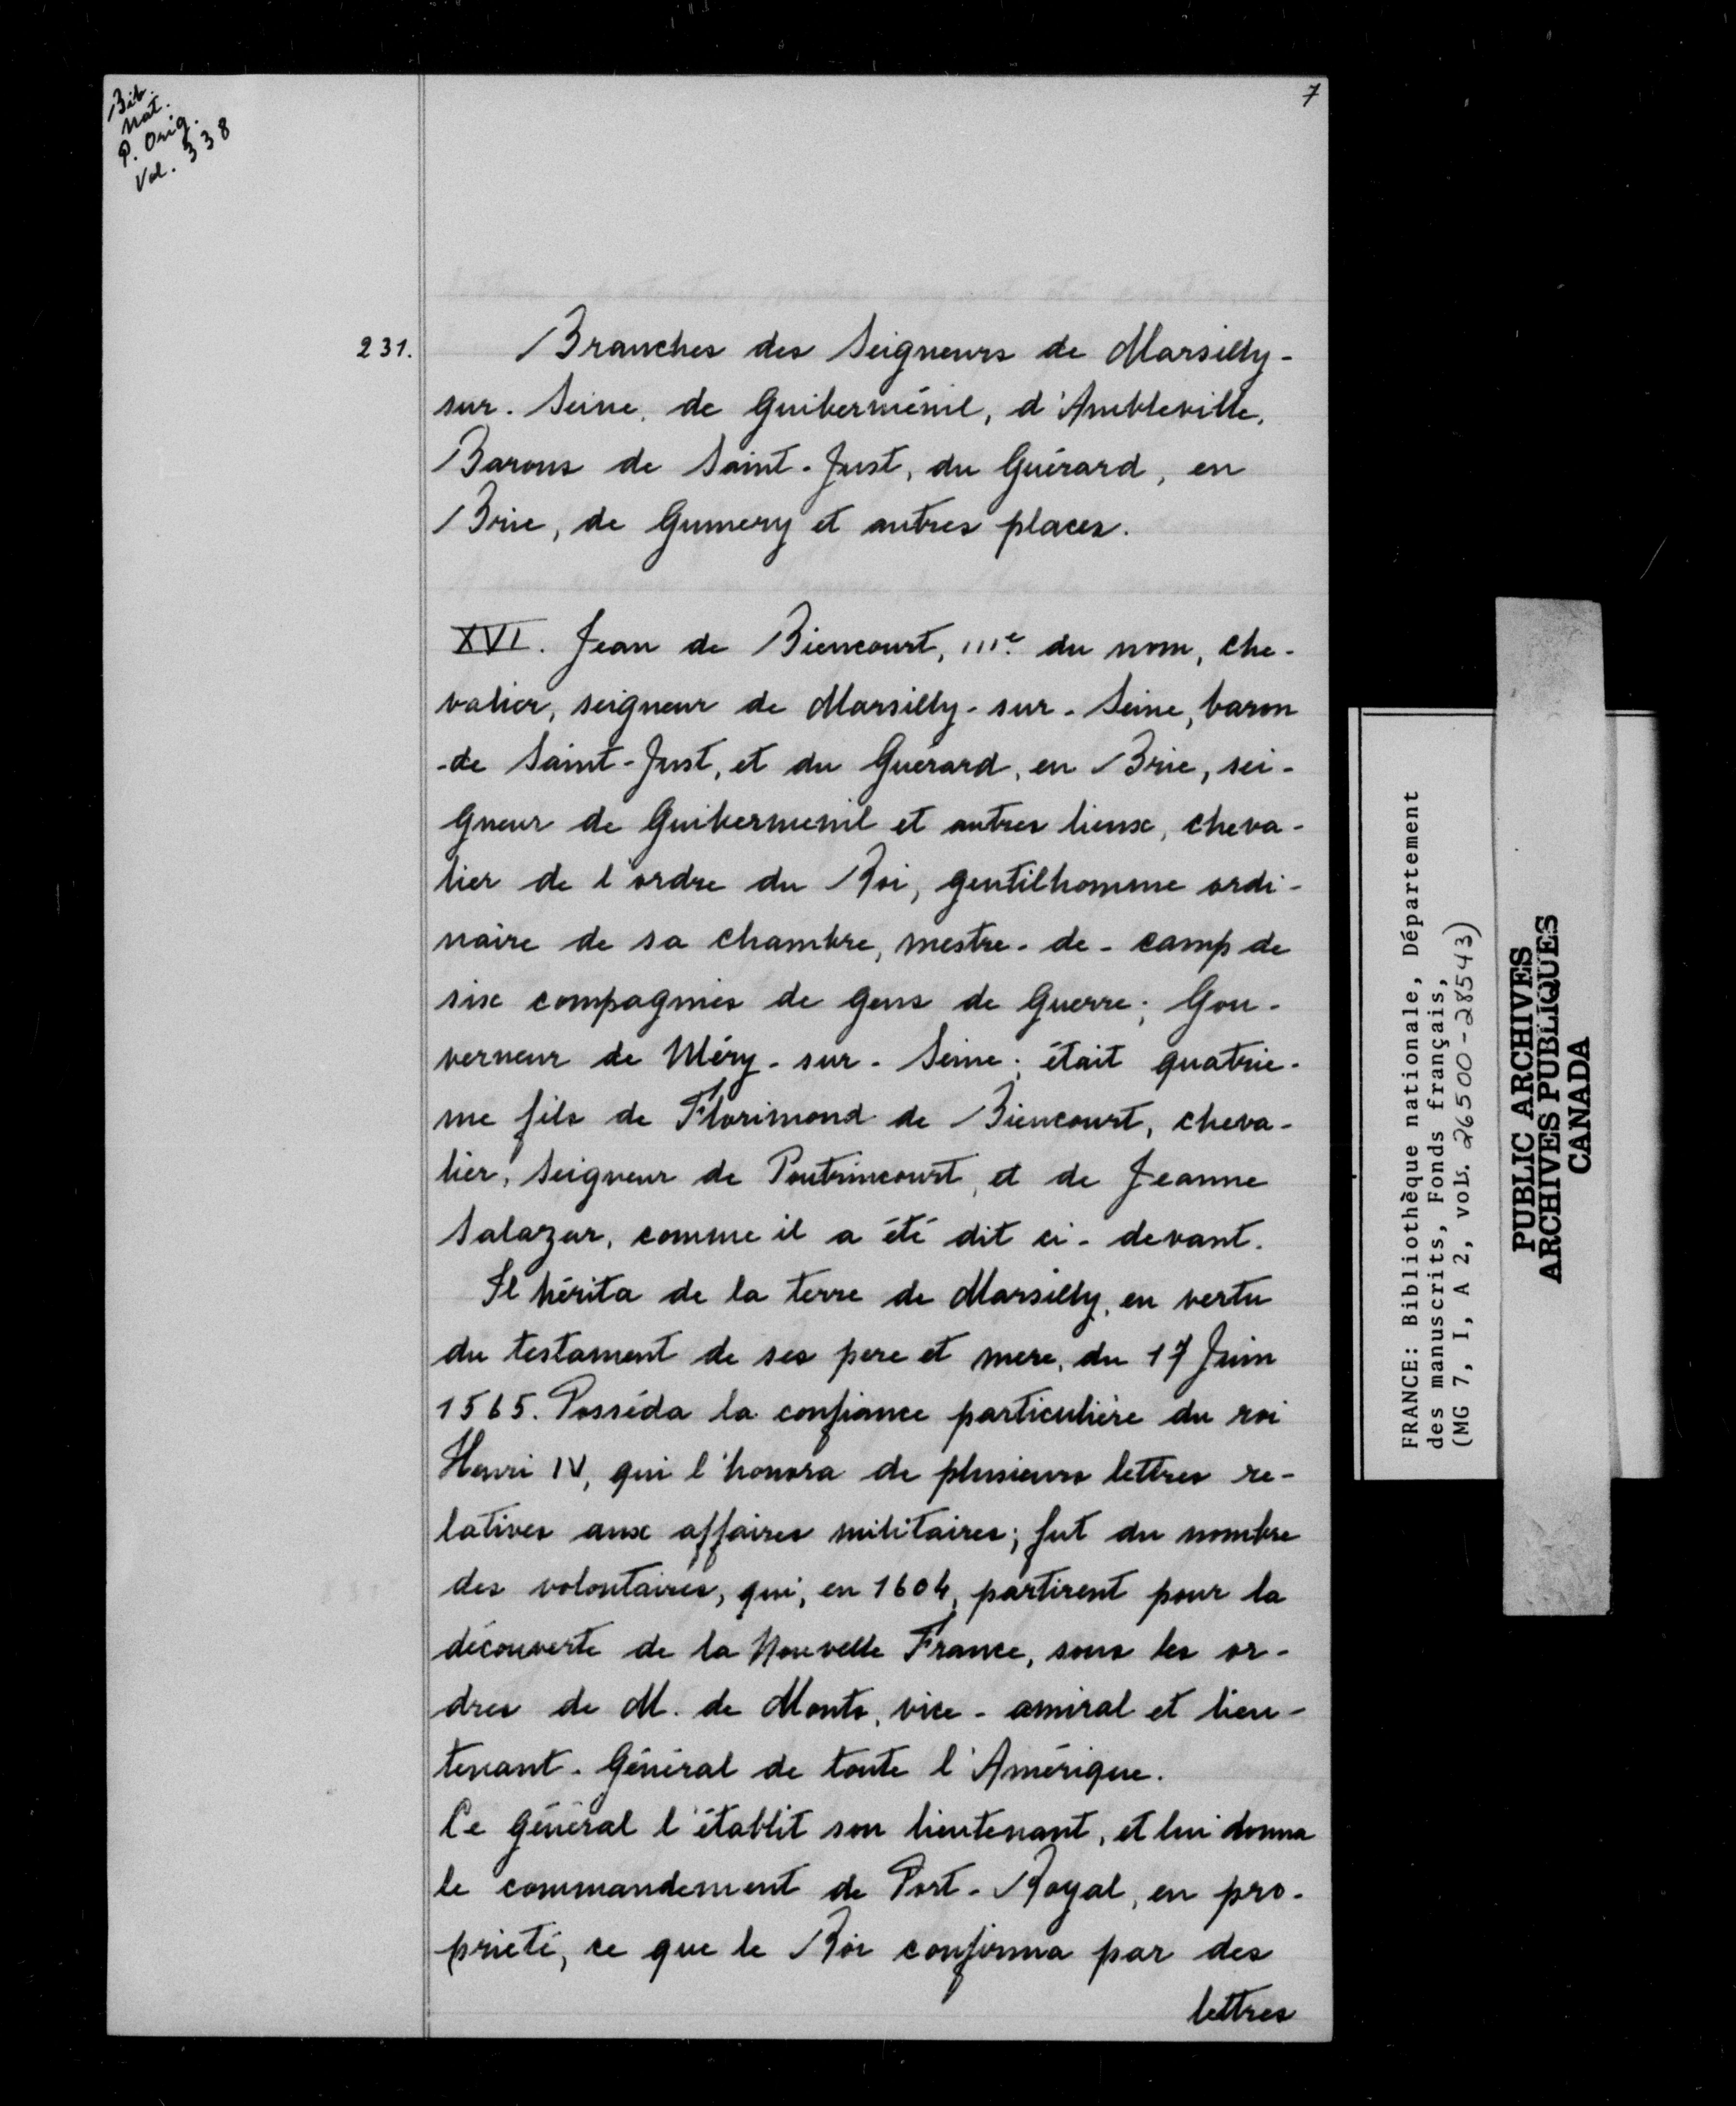 Bib.
Nat.
P. Orig.
Vol. 338
7
231.
Branches des Seigneurs de Marsilly-
sur-Seine, de Guiberménil, d'Ambleville,
Barons de Saint-Just, du Guérard, en
Brie, de Gumery et autres places.
XVI. Jean de Biencourt, IIIe. du nom, che-
valier, seigneur de Marsilly-sur-Seine, baron
-de Saint-Just, et du Guérard, en Brie, sei-
gneur de Guibermenil et autres lieux, cheva-
lier de l'ordre du Roi, gentilhomme ordi-
naire de sa chambre, mestre-de-camp de
six compagnies de gens de guerre; Gou-
verneur de Méry-sur-Seine; était quatriè-
me fils de Florimond de Biencourt, cheva-
lier, Seigneur de Poutrincourt, et de Jeanne
Salazar, comme il a été dit ci-devant.
Il hérita de la terre de Marsilly, en vertu
du testament de ses pere et mere, du 17 Juin
1565. Posséda la confiance particulière du roi
Henri IV, qui l'honora de plusieurs lettres re-
latives aux affaires militaires; fut du nombre
des volontaires, qui, en 1604, partirent pour la
découverte de la Nouvelle France, sous les or-
dres de M. de Monts, vice-amiral et lieu-
tenant-Général de toute l'Amérique.
Ce Général l'établit son lieutenant, et lui donna
le commandement de Port-Royal, en pro-
priété, ce que le Roi confirma par des
lettres
FRANCE: Bibliothèque nationale, Département
des manuscrits, Fonds français,
(MG 7, I, A 2, vol. 26500-28543)
PUBLIC ARCHIVES
ARCHIVES PUBLIQUES
CANADA